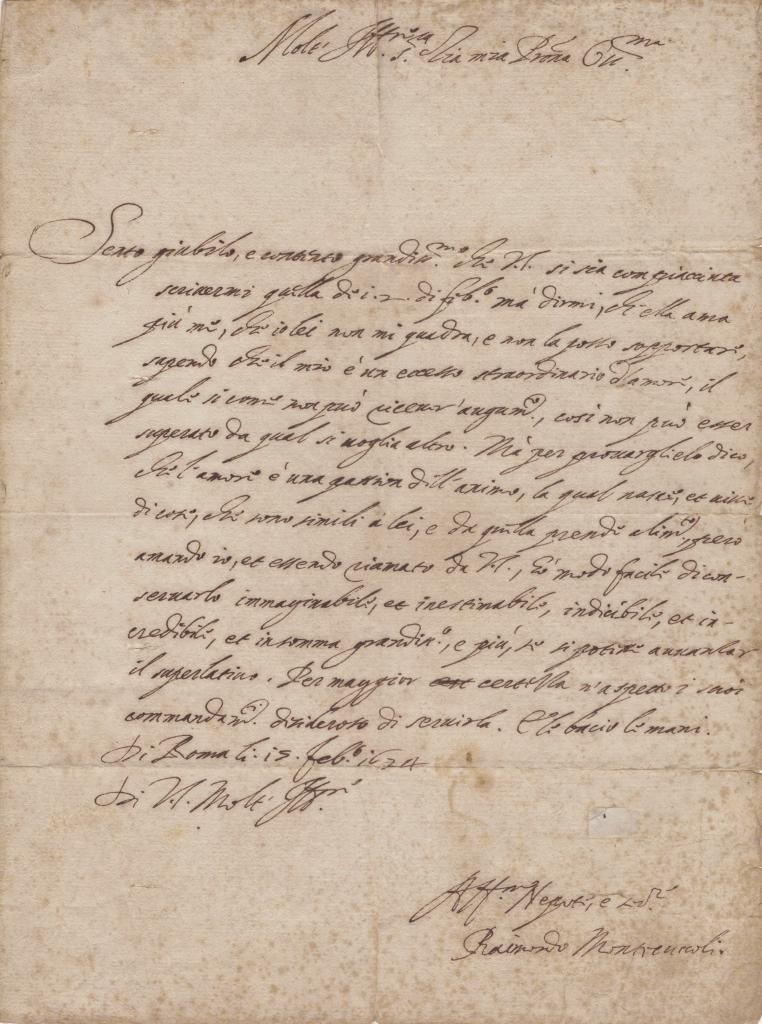 Molt' Ill.re S.ra Zia mia P'rona Oss.ma
Sento giubilo, e contento grandiss.mo che V.S. si sia compiacciuta
scrivermi quella de i 2. di feb.o mà dirmi, ch'ella ama
più me, che io lei non mi quadra, e non la posso sopportare,
sapendo che il mio è un eccesso straordinario d'amore, il
quale si come non può ricever' augum.to, così non può esser
superato da qual si voglia altro. Mà per provarglielo dico,
che l'amore è una passion dell'animo, la qual nasce, et vive
di cose, che sono simili à lei, e da quella prende alim.to, però
amando io, et essendo riamato da V.S., è modo facile di con-
servarlo immaginabile, et inestimabile, indicibile, et in-
credibile, et in somma grandiss.o, e più, se si potesse avvanzar
il superlativo. Per maggior certezza n'aspetto i suoi
commandam.ti desideroso di servirla. E le bacio le mani.
Di Roma li. 15. feb.o 1624
Di V.S. Molt' Ill.re
Aff.mo Nepote, e
Raimondo Montecuccoli.